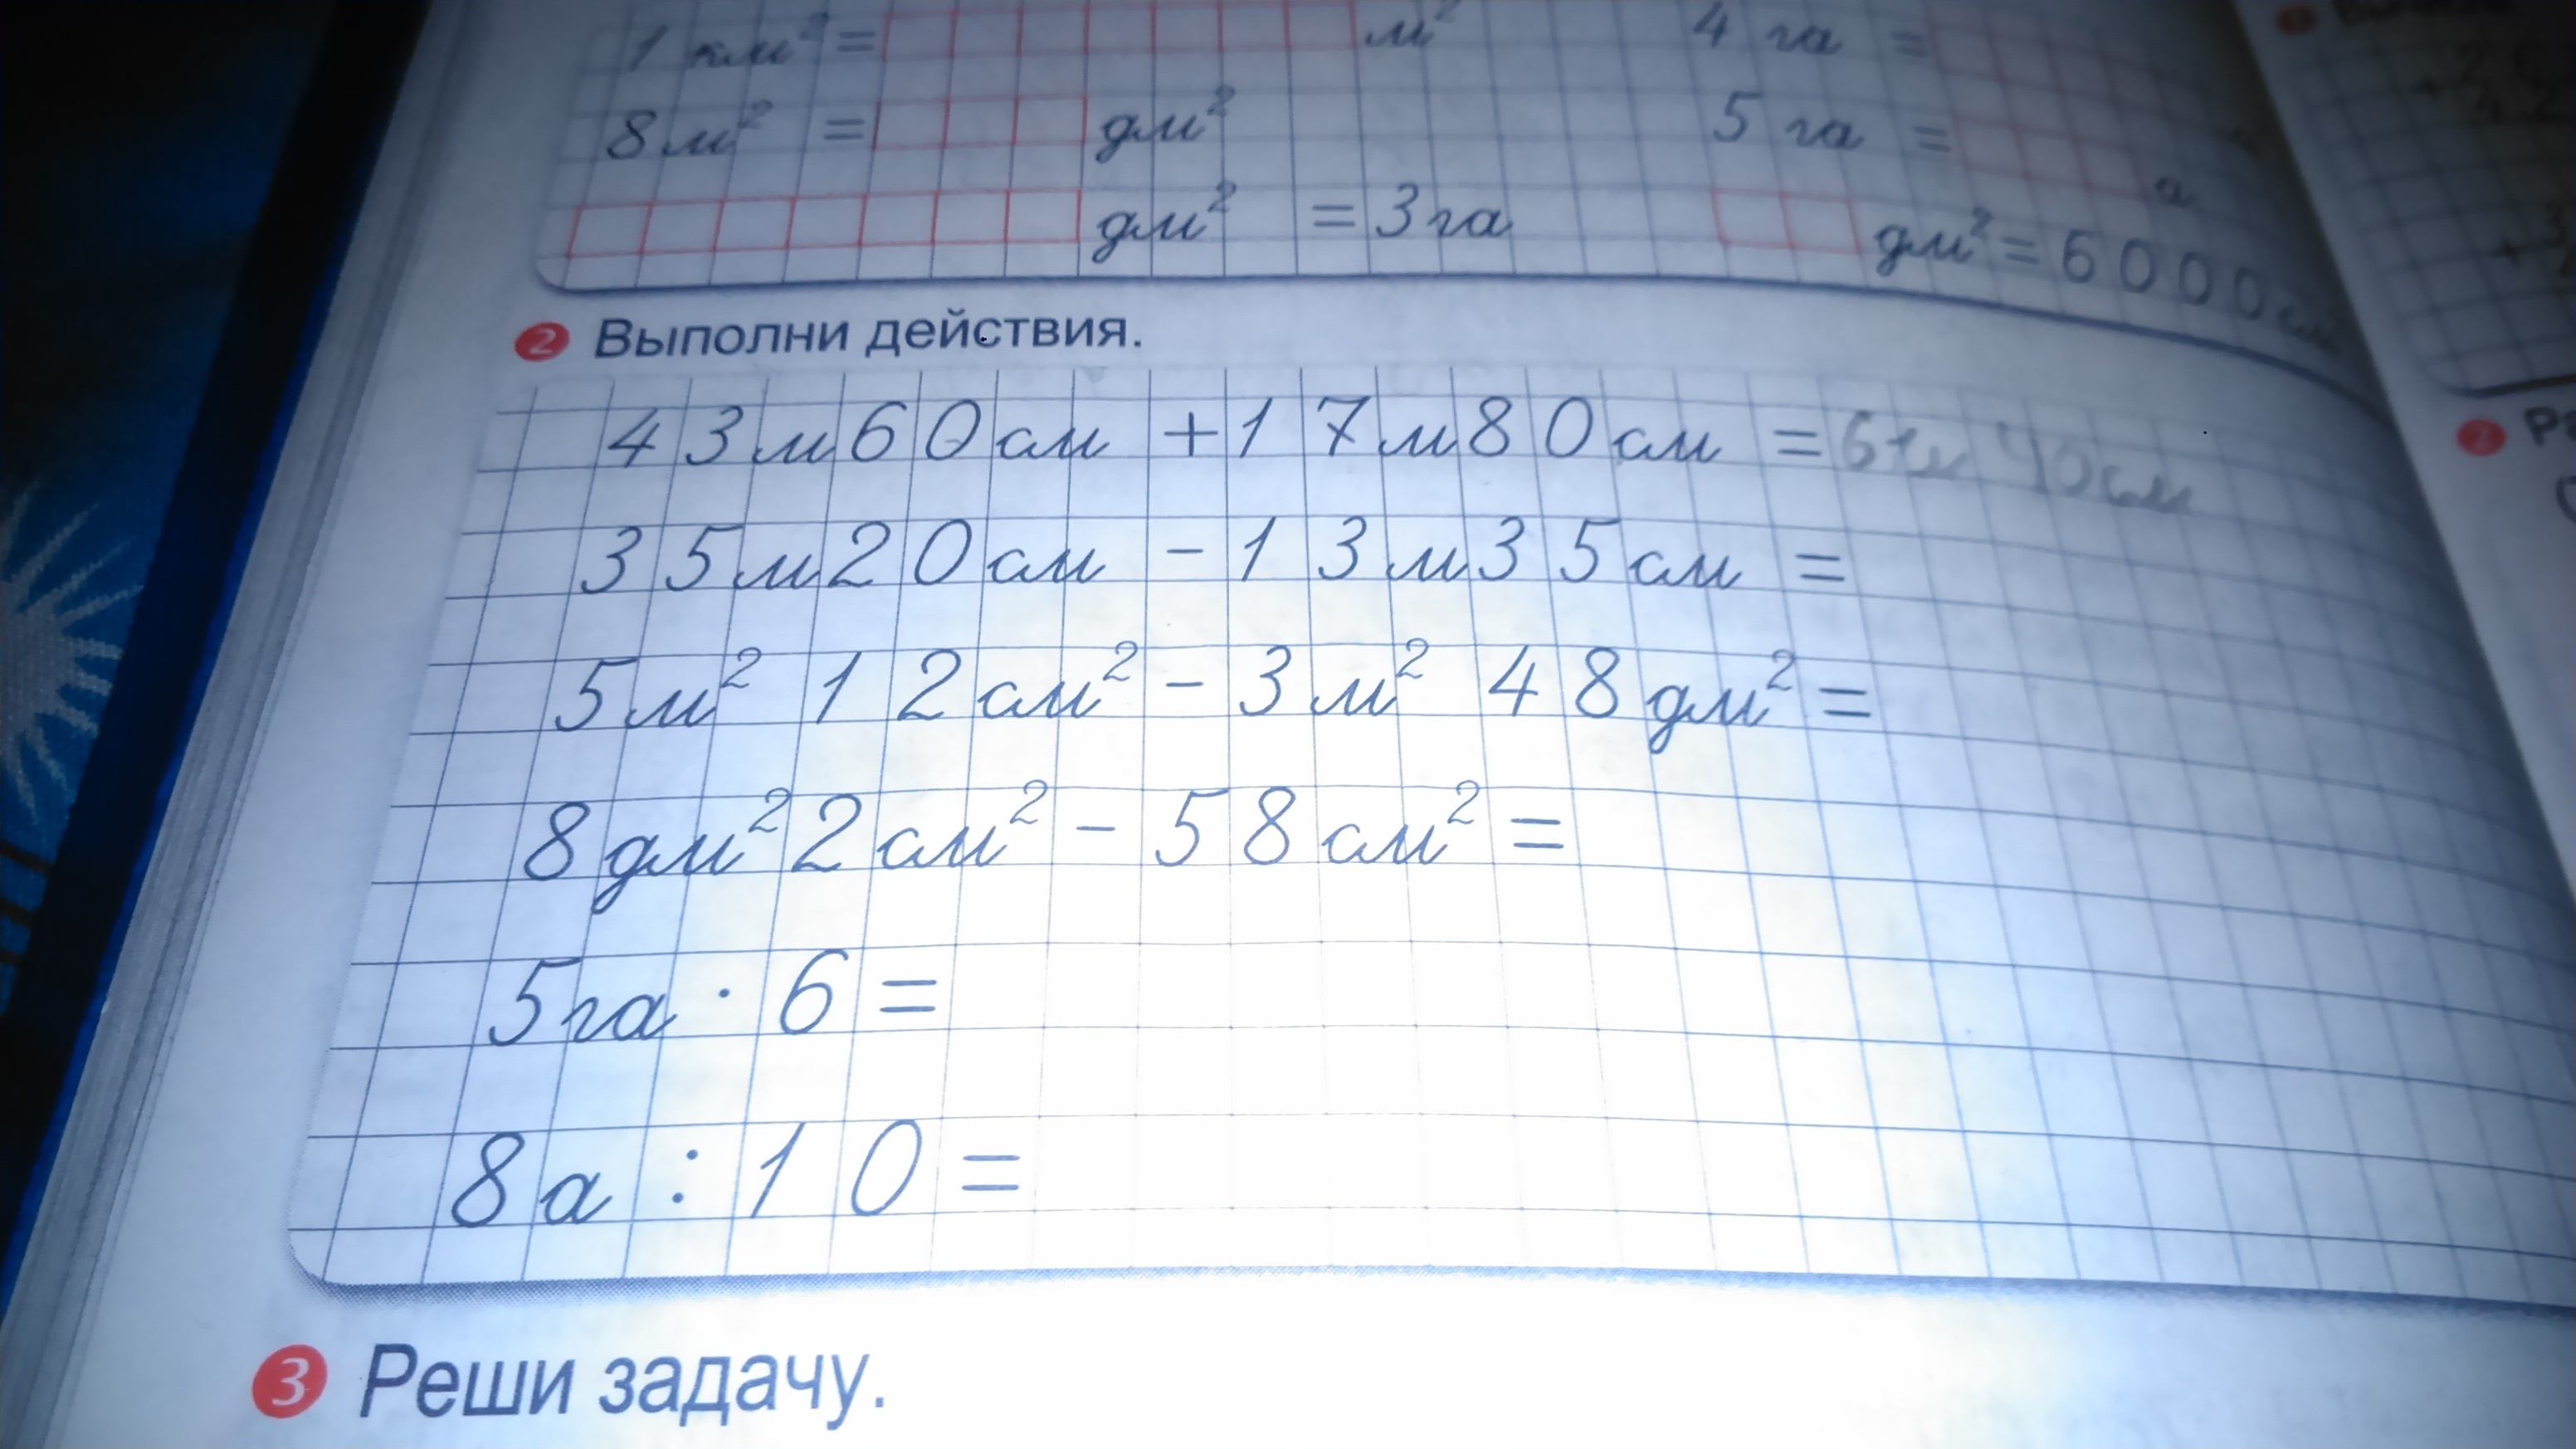 1 км² = м² 4 га =
8 м² = дм² 5 га = а
дм² = 3 га дм² = 6000 см
2 Выполни действия.
43 м 60 см + 17 м 80 см = 61 м 40 см
35 м 20 см - 13 м 35 см =
5 м² 12 см² - 3 м² 48 дм² =
8 дм² 2 см² - 58 см² =
5 га · 6 =
8 а : 10 =
3 Реши задачу.